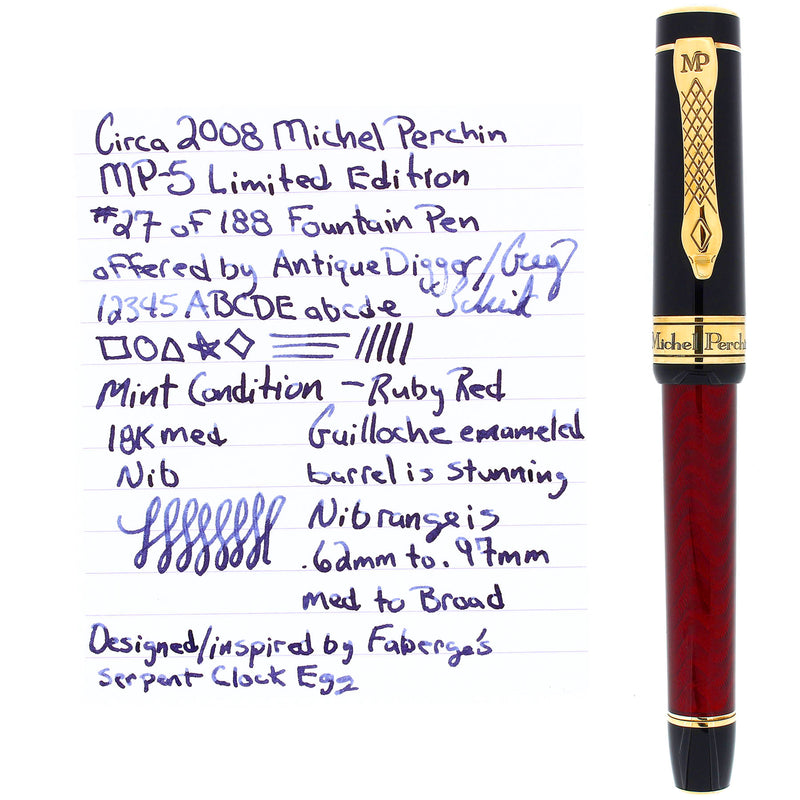 Circa 2008 Michel Perchin
MP-5 Limited Edition
#27 of 188 Fountain Pen
offered by Antique Digger/Greg
12345 ABCDE abcde
Mint Condition - Ruby Red
18K med
Nib
Guilloche enameled
barrel is stunning
Nib range is
.62mm to .97mm
med to Broad
Designed/inspired by Faberge's
Serpent Clock Egg
MP
Michel Perchi